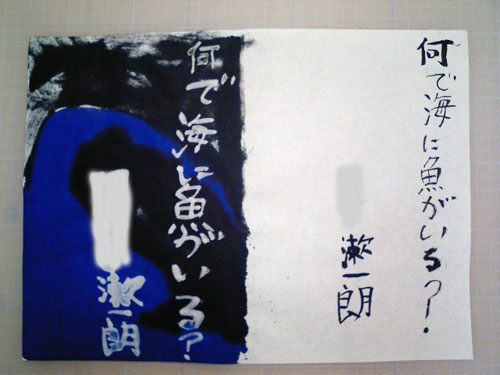 何で海に魚がいる?
漱一朗
何で海に魚がいる?
漱一朗